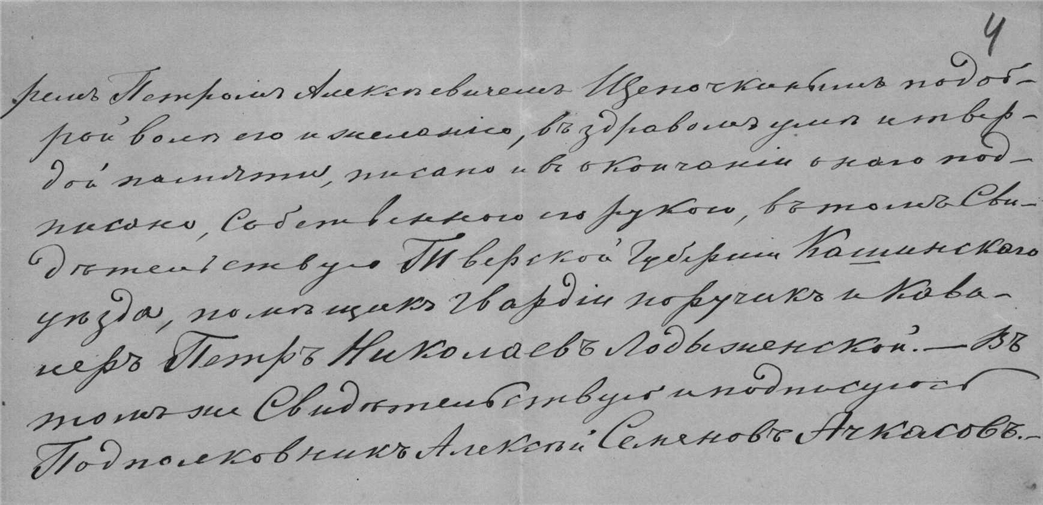 4
ремъ Петромъ Алексѣевичемъ Щепочкинымъ подоб-
рой волѣ его и желанію, въ здравомъ умѣ и твер-
дой памяти, писано и въ окончаніи онаго под-
писано, Собственною его рукою, въ томъ Сви-
дѣтельствую Тверской Губерніи Кашинскаго
уѣзда, помѣщикъ гвардіи поручикъ и Кава-
леръ Петръ Николаевъ Лодыженской. — Въ
томъ же Свидѣтельствую и подписуюсь
Подполковникъ Алексѣй Семеновъ Ачкасовъ. —